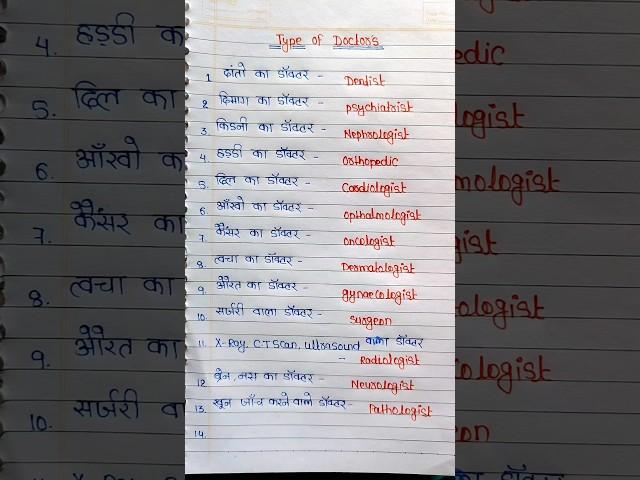 Type of Doctors
1. दांतो का डॉक्टर - Dentist
2. दिमाग का डॉक्टर - psychiatrist
3. किडनी का डॉक्टर - Nephrologist
4. हड्डी का डॉक्टर - Orthopedic
5. दिल का डॉक्टर - Cardiologist
6. आँखो का डॉक्टर - opthalmologist
7. कैंसर का डॉक्टर - oncologist
8. त्वचा का डॉक्टर - Dermatologist
9. औरत का डॉक्टर - gynaecologist
10. सार्जरी वाला डॉक्टर - Surgeon
11. X-Ray, CT Scan, ultrasound वाला डॉक्टर
- Radiologist
12. ब्रेन, नस का डॉक्टर - Neurologist
13. खून जाँच करने वाले डॉक्टर - Pathologist
14.